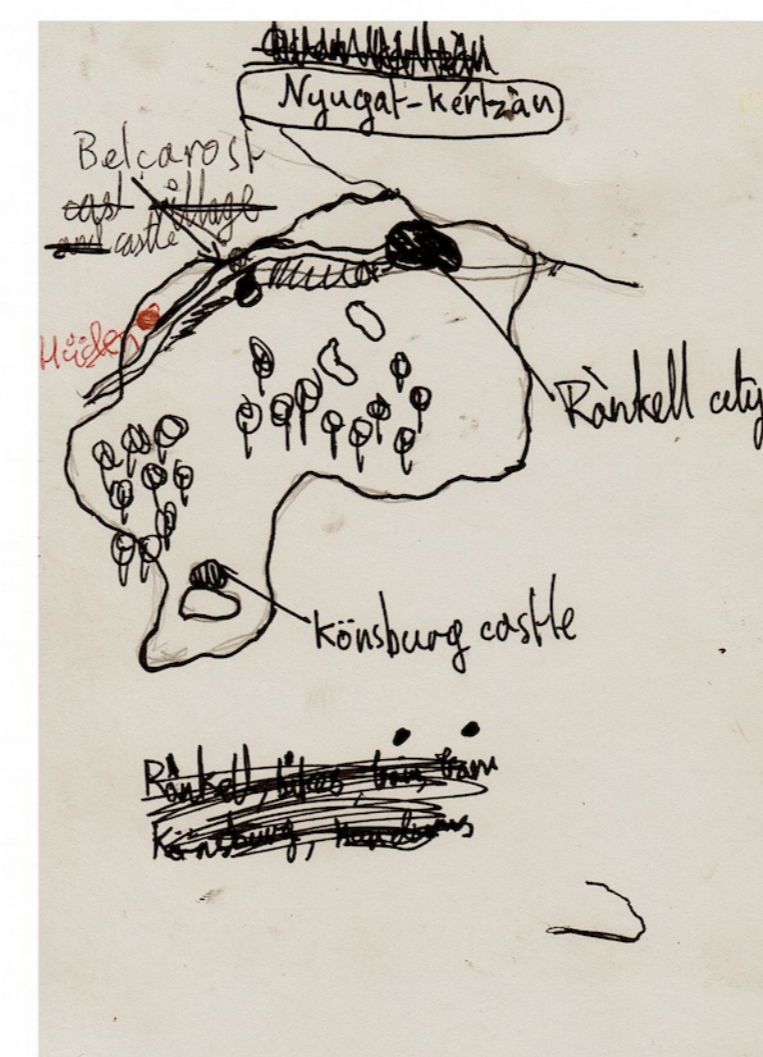 Nyugat-kértzàn
Belcarost
cast village
and castle
Hüðen
Rànkell city
Könsburg castle
Rànkell, bikes, train, tram
Könsburg,